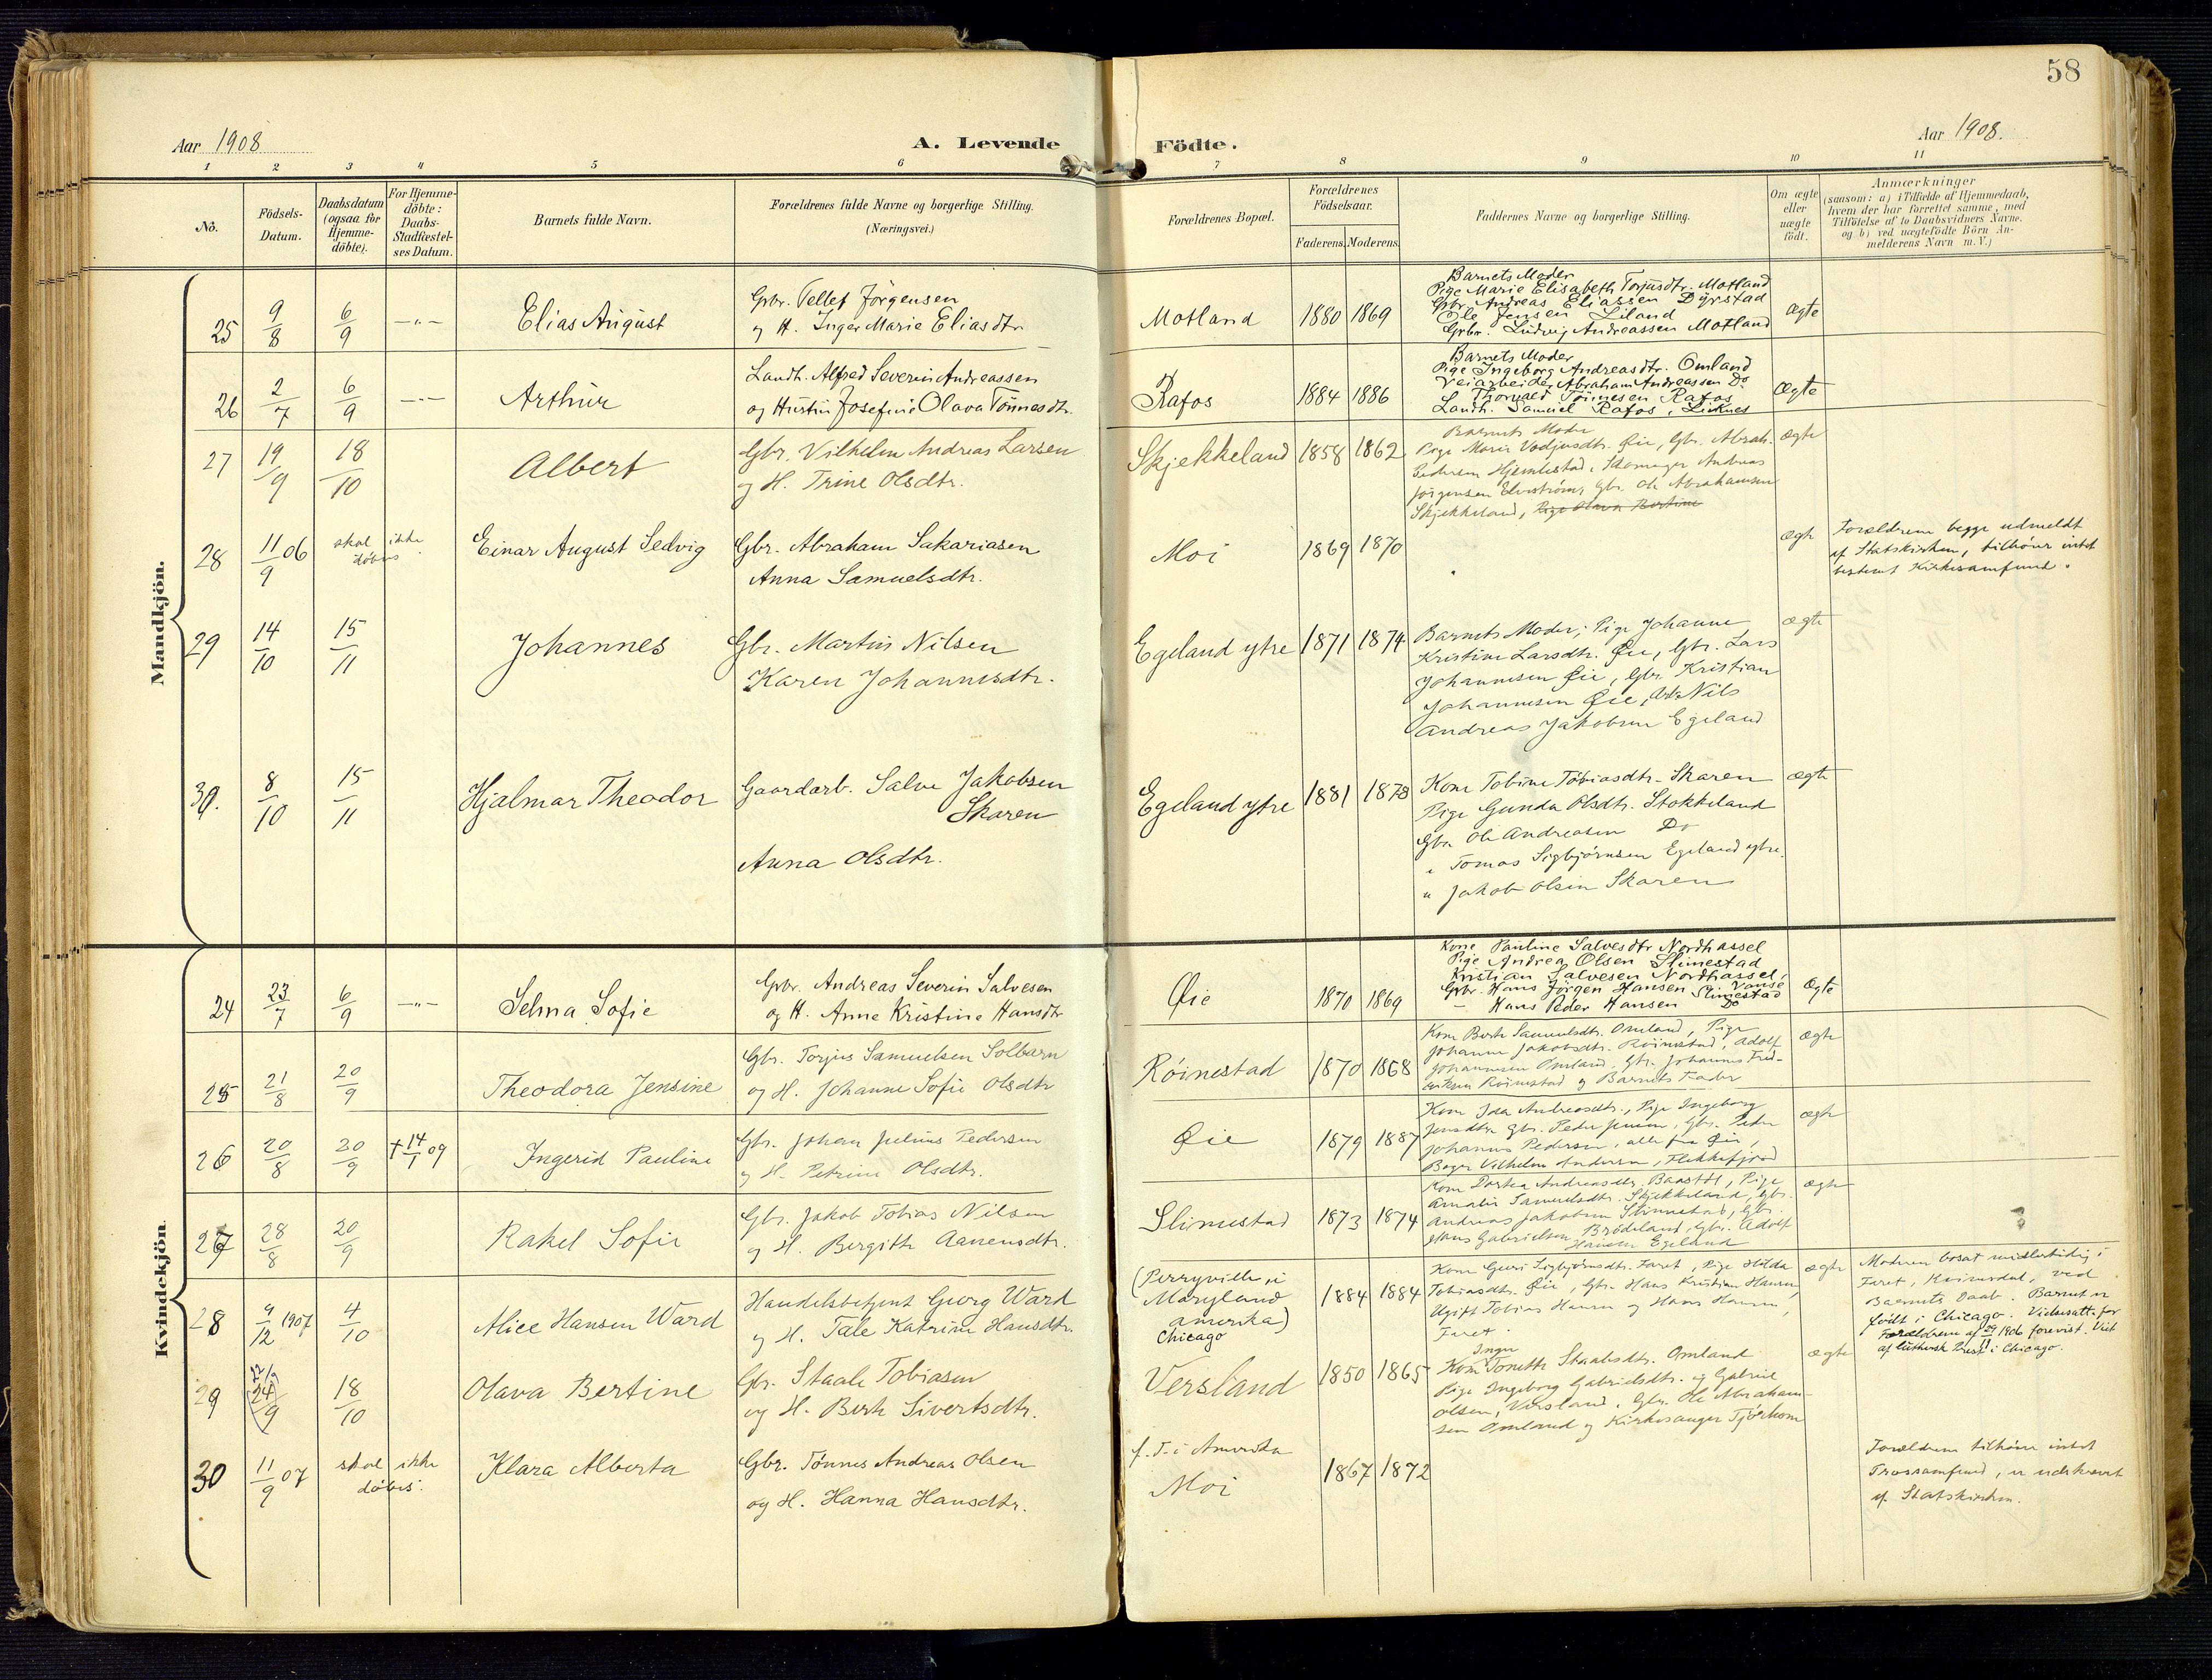 58
Aar 1908
A. Levende Födte.
Aar 1908.
1 2 3 4 5 6 7 8 9 10 11
No.
Födsels-
Datum.
Daabsdatum
(ogsaa for
Hjemme-
döbte).
For Hjemme-
döbte:
Daabs-
Stadfæstel-
ses Datum.
Barnets fulde Navn.
Forældrenes fulde Navne og borgerlige Stilling.
(Næringsvei.)
Forældrenes Bopæl.
Forældrenes
Födselsaar.
Faderens. Moderens.
Faddernes Navne og borgerlige Stilling.
Om ægte
eller
uægte
födt.
Anmærkninger
(saasom: a) i Tilfælde af Hjemmedaab,
hvem der har forrettet samme, med
Tilföielse af to Daabsvidners Navne.
og b) ved uægtefödte Börn An-
melderens Navn m. V.)
Mandkjön.
25 9/8 6/9 —"— Elias August
Gbr. Tellef Jörgensen
og H. Inger Marie Eliasdtr.
Motland 1880 1869
Barnets Moder
Pige Marie Elisabeth Torjusdtr. Motland
Gbr. Andreas Eliassen Dyrstad
Ole Jensen Liland
Gbr. Ludvig Andreassen Motland
ægte
26 2/7 6/9 —"— Arthur
Landh. Alfred Severin Andreassen
og Hustru Josefine Olava Tönnesdtr.
Rafos 1884 1886
Barnets Moder
Pige Ingeborg Andreasdtr. Omland
Veiarbeider Abraham Andreassen Do
Thorvald Tönnesen Rafos
Landh. Samuel Rafos, Liknes
Ægte
27 19/9 18/10 Albert
Gbr. Vilhelm Andreas Larsen
og H. Trine Olsdtr.
Skjekkeland 1858 1862
Barnets Moder
Pige Marie Vadjusdtr. Øie, Gbr. Abrah.
Pedersen Hjemlestad, Skomager Andreas
Jörgensen Elvström, Gbr. Ole Abrahamsen
Skjekkeland, Pige Olava Bertine
ægte
28 11/9 06 skal ikke
döbes
Einar August Sedvig
Gbr. Abraham Sakariasen
Anna Samuelsdtr.
Moi 1869 1870
ægte
Forældrene begge udmeldt
af Statskirken, tilhörer intet
bestemt Kirkesamfund.
29 14/10 15/11 Johannes
Gbr. Martin Nilsen
Karen Johannesdtr.
Egeland ytre 1871 1874
Barnets Moder; Pige Johanne
Kristine Larsdtr. Øie, Gbr. Lars
Johannesen Øie, Gbr. Kristian
Johannesen Øie, Arb. Nils
Andreas Jakobsen Egeland
ægte
30. 8/10 15/11 Hjalmar Theodor
Gaardarb. Salve Jakobsen
Skaren
Anna Olsdtr.
Egeland ytre 1881 1878
Kone Tobine Tobiasdtr. Skaren
Pige Gunda Olsdtr. Stokkeland
Gbr. Ole Andreasen Do
" Tomas Sigbjörnsen Egeland ytre.
" Jakob Olsen Skaren
ægte
Kvindekjön.
24 23/7 6/9 —"— Selma Sofie
Gbr. Andreas Severin Salvesen
og H. Anne Kristine Hansdtr
Øie 1870 1869
Kone Pauline Salvesdtr Nordhassel
Pige Andrea Olsen Slimestad
Kristian Salvesen Nordhassel,
Gbr. Hans Jörgen Hansen Slimestad Vanse
— Hans Peder Hansen Do
Ægte
25 21/8 20/9 Theodora Jensine
Gbr. Torjus Samuelsen Solbarn
og H. Johanne Sofie Olsdtr
Röinestad 1870 1868
Kone Berte Samuelsdtr. Omland, Pige
Johanne Jakobsdtr. Röinestad, Adolf
Johannesen Omland, Gbr. Johannes Fred-
eriksen Röinestad og Barnets Fader
ægte
26 20/8 20/9 †14/1 09 Ingerid Pauline
Gbr. Johan Julius Pedersen
og H. Petrine Olsdtr.
Øie 1879 1887
Kone Ida Andreasdtr., Pige Ingeborg
Jensdtr. Gbr. Peder Jensen, Gbr. Peder
Johannes Pedersen, alle fra Øie,
Bager Vilhelm Andersen, Flekkefjord
ægte
27 28/8 20/9 Rakel Sofie
Gbr. Jakob Tobias Nilsen
og H. Bergithe Aanensdtr.
Slimestad 1873 1874
Kone Dortea Andreasdtr. Baastöl, Pige
Amalie Samuelsdtr. Skjekkeland, Gbr.
Andreas Jakobsen Slimestad, Gbr.
Hans Gabrielsen Brödeland, Gbr. Adolf
Hansen Egeland
ægte
28 9/12 1907 4/10 Alice Hansen Ward
Handelsbetjent Georg Ward
og H. Tale Katrine Hansdtr.
(Perryville, i
Maryland
Amerika)
Chicago
1884 1884
Kone Guri Sigbjörnsdtr. Faret, Pige Hilda
Tobiasdtr. Øie, Gbr. Hans Kristian Hansen,
Ugift Tobias Hansen og Hans Hansen,
Faret.
ægte
Moderen bosat midlertidig i
Faret, Kvinesdal, ved
Barnets Daab. Barnet er
født i Chicago. Vielsesatt. for
Forældrene af 29/11 1906 forevist. Viet
af luthersk Præst i Chicago.
29 22/9 (24/9) 18/10 Olava Bertine
Gbr. Staale Tobiasen
og H. Berte Sivertsdtr.
Versland 1850 1865
Inger
Kone Tonette Staalesdtr. Omland
Pige Ingeborg Gabrielsdtr. og Gabriel
Olsen, Versland, Gbr. Ole Abraham-
sen Omland og Kirkesanger Tjörhom
ægte
30 11/9 07 skal ikke
döbes.
Klara Alberta
Gbr. Tönnes Andreas Olsen
og H. Hanna Hansdtr.
f. T. i Amerika
Moi 1867 1872
Forældrene tilhörer intet
Trossamfund, er udskrevet
af Statskirken.